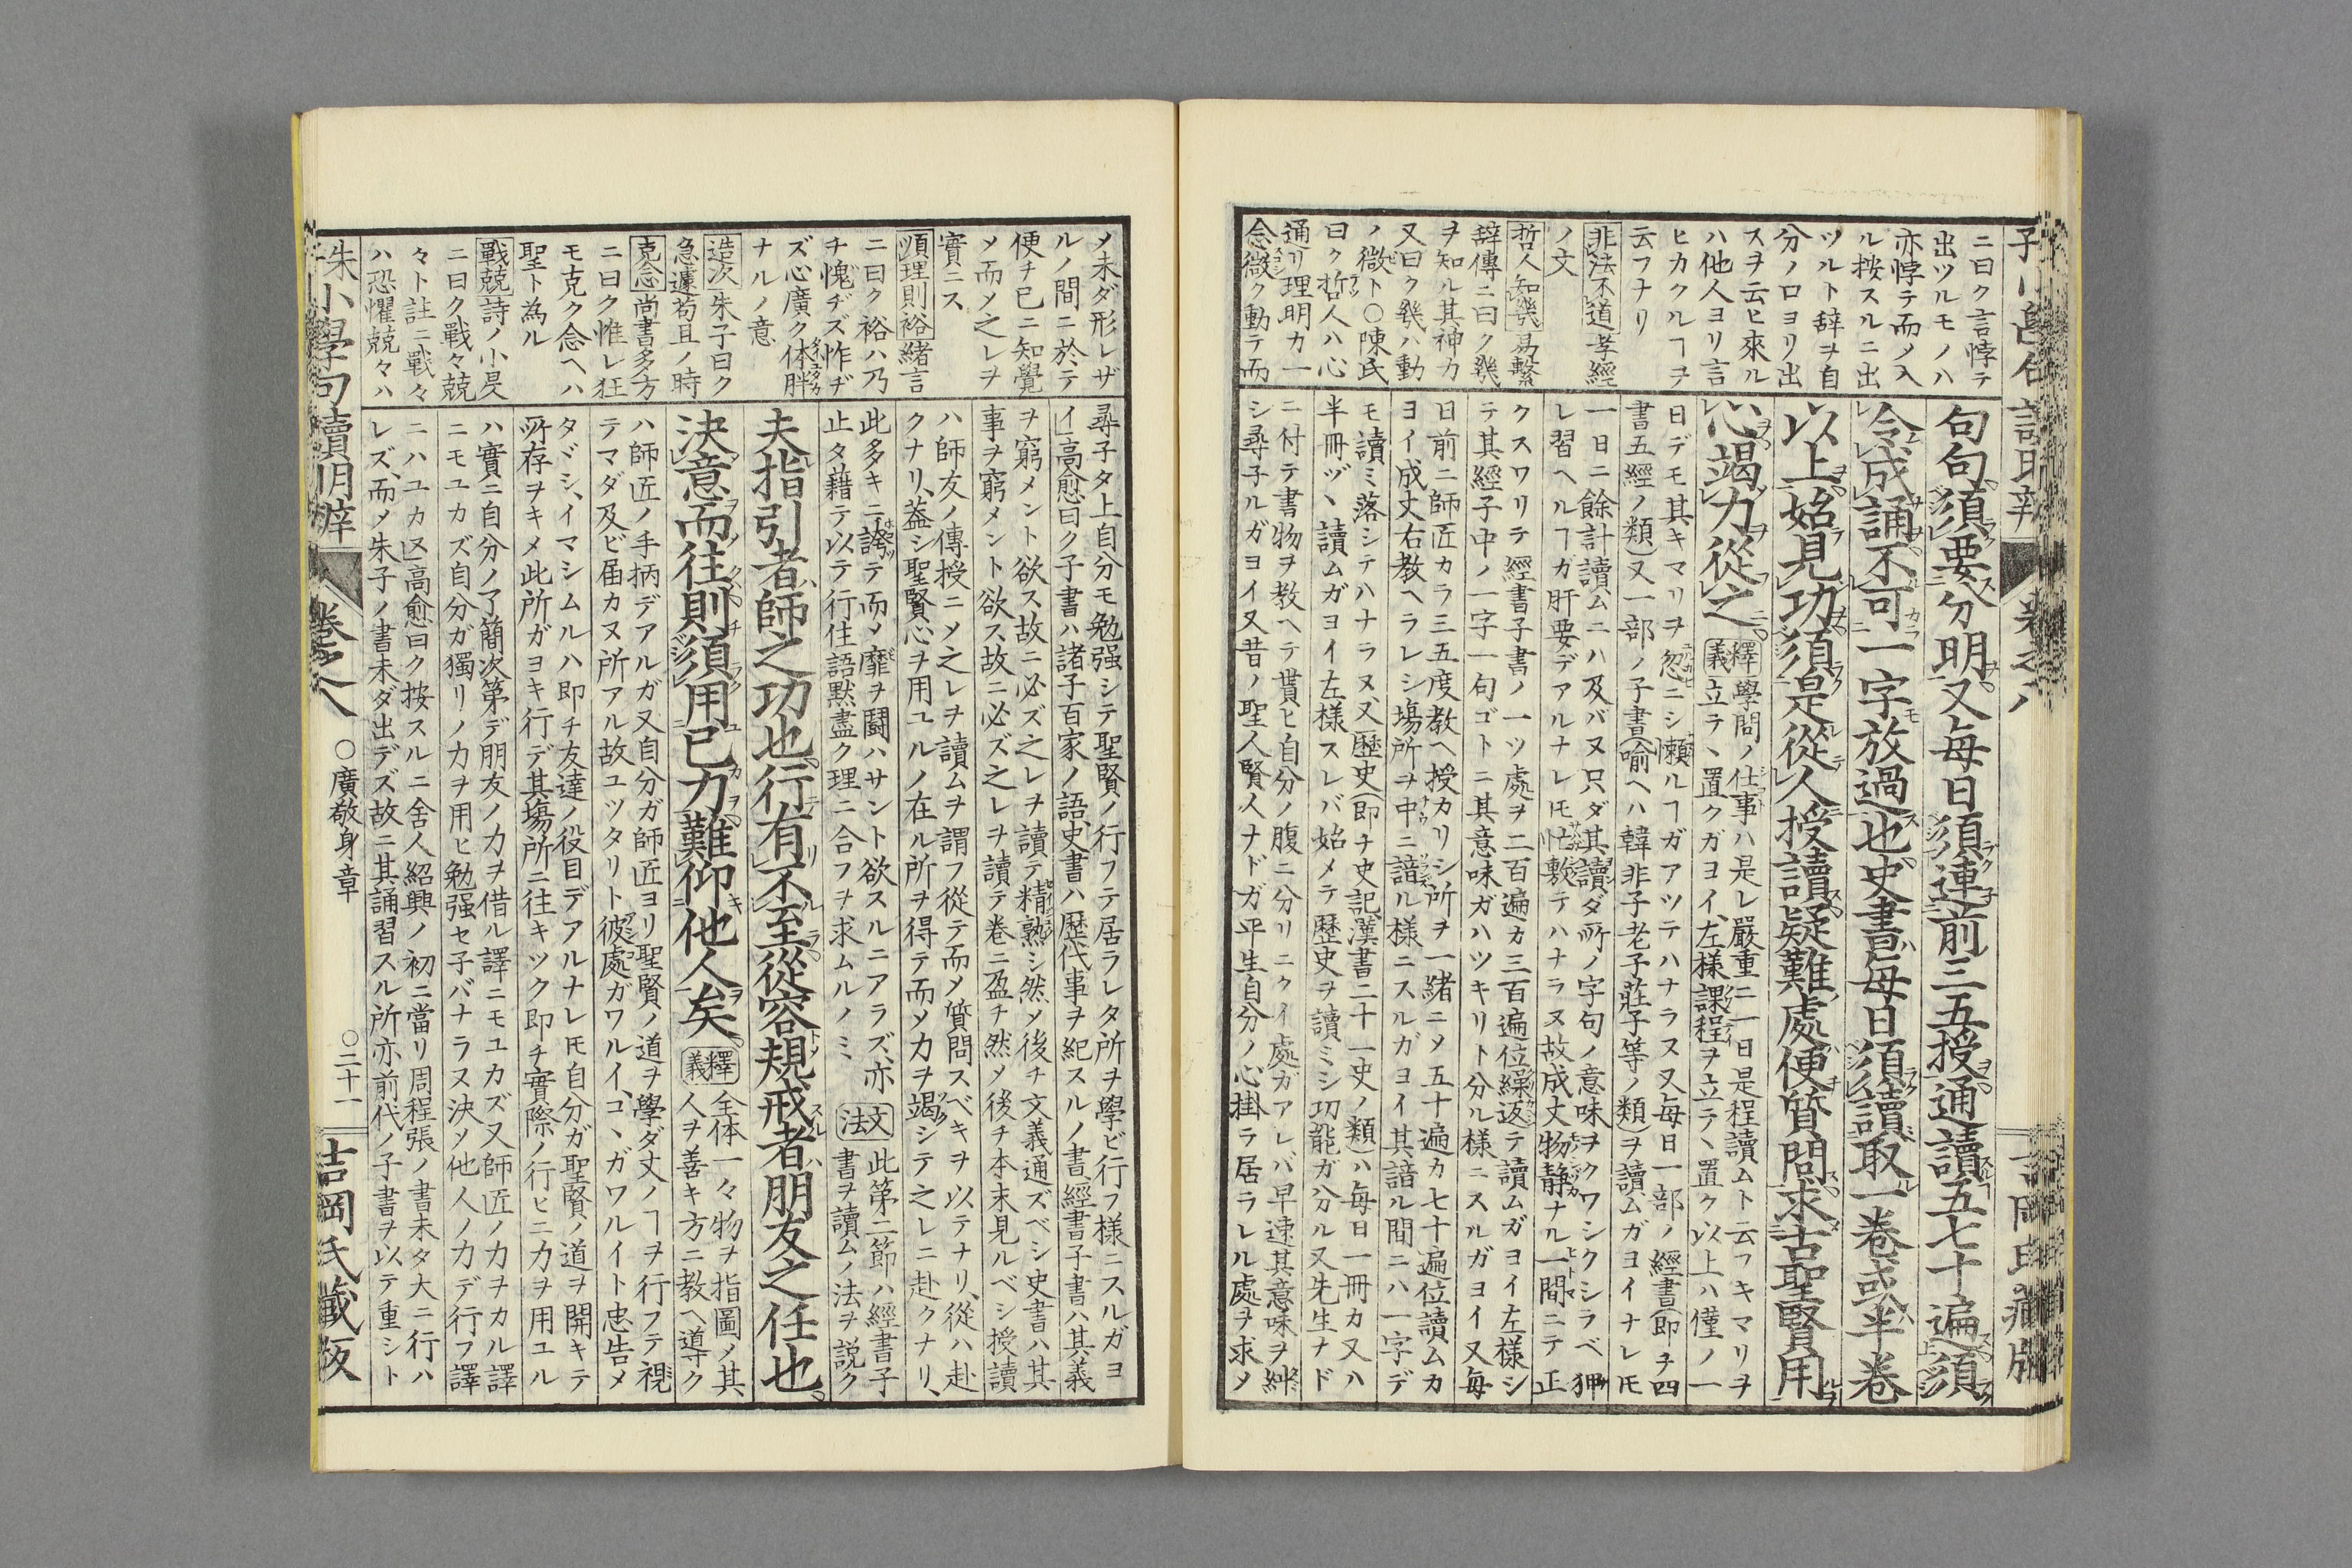 ニ曰ク言悖テ
出ツルモノハ
亦悖テ而メ入
ル按スルニ出
ツルト辞ヲ自
分ノ口ヨリ出
スヲ云ヒ來ル
ハ他人ヨリ言
ヒカクルヿヲ
云フナリ
非法不道孝經
ノ文
哲人知幾易繫
辞傳ニ曰ク幾
ヲ知ル其神カ
又曰ク幾ハ動
ノ微ト〇陳氏
曰ク哲人ハ心
通リ理明カ一
念微ク動テ而
句句須要分明又每日須連前三五授通讀五七十遍須
令成誦不可一字放過也史書每日須讀取一卷或半卷
以上始見功須是從人授讀疑難處便質問求古聖賢用
心竭力從之
釋義
學問ノ仕事ハ是レ嚴重ニ一日是程讀ムト云フキマリヲ
立ラヽ置クガヨイ、左樣課程ヲ立テヽ置ク以上ハ僅ノ一
日デモ其キマリヲ忽ニシ懶ルヿガアツテハナラヌ又每日一部ノ經書(即チ四
書五經ノ類)又一部ノ子書(喻ヘハ韓非子老子莊子等ノ類ヲ讀ムガヨイナレ𪜈
一日ニ餘計讀ムニハ及バヌ只ダ其讀ダ所ノ字句ノ意味ヲクワシクシラベ狎
レ習ヘルヿガ肝要デアルナレ𪜈忙敷テハナラヌ故成丈物靜ナル一間ニテ正
クスワリテ經書子書ノ一ツ處ヲ二百遍カ三百遍位繰返テ讀ムガヨイ左樣シ
テ其經子中ノ一字一句ゴトニ其意味ガハツキリト分ル樣ニスルガヨイ又每
日前ニ師匠カラ三五度敎ヘ授カリシ所ヲ一緒ニメ五十遍カ七十遍位讀ムカ
ヨイ成丈右敎ヘラレシ塲所ヲ中ニ諳ル樣ニスルガヨイ其諳ル間ニハ一字デ
モ讀ミ落シテハナラヌ又歷史(即チ史記漢書二十一史ノ類)ハ每日一冊カ又ハ
半冊ヅヽ讀ムガヨイ左樣スレバ始メテ歷史ヲ讀ミシ功能ガ分ル又先生ナド
ニ付テ書物ヲ敎ヘテ貰ヒ自分ノ腹ニ分リニクイ處ガアレバ早速其意味ヲ糾
シ尋子ルガヨイ又昔ノ聖人賢人ナドガ平生自分ノ心掛ラ居ラレル處ヲ求メ
メ未ダ形レザ
ルノ間ニ於テ
便チ已ニ知覺
メ而メ之レヲ
實ニス
順理則裕緒言
ニ曰ク裕ハ乃
チ愧ヂズ怍ヂ
ズ心廣ク体胖
ナルノ意
造次朱子曰ク
急遽苟且ノ時
克念尚書多方
ニ曰ク惟レ狂
モ克ク念ヘハ
聖ト為ル
戰兢詩ノ小旻
ニ曰ク戰々兢
々ト註ニ戰々
ハ恐懼兢々ハ
尋子タ上自分モ勉强シテ聖賢ノ行フテ居ラレタ所ヲ學ビ行フ樣ニスルガヨ
イ高愈曰ク子書ハ諸子百家ノ語、史書ハ歷代事ヲ紀スルノ書、經書子書ハ其義
ヲ窮メント欲ス故ニ必ズ之レヲ讀テ精熟シ然メ後チ文義通ズベシ史書ハ其
事ヲ窮メント欲ス故ニ必ズ之レヲ讀テ卷ニ盈チ然メ後チ本末見ルベシ授讀
ハ師友ノ傳授ニメ之レヲ讀ムヲ謂フ從テ而メ質問スベキヲ以テナリ、從ハ赴
クナリ、蓋シ聖賢心ヲ用ユルノ在ル所ヲ得テ而メ力ヲ竭シテ之レニ赴クナリ、
此多キニ誇テ而メ靡ヲ鬪ハサント欲スルニアラズ、亦
止タ藉テ以テ行住語默盡ク理ニ合フヲ求ムルノミ、
文法
此第二節ハ經書子
書ヲ讀ムノ法ヲ説ク
夫指引者師之功也行有不至從容規戒者朋友之任也
決意而往則須用已力難仰他人矣
釋義
全体一々物ヲ指圖ノ其
人ヲ善キ方ニ敎ヘ導ク
ハ師匠ノ手柄デアルガ又自分ガ師匠ヨリ聖賢ノ道ヲ學ダ丈ノヿヲ行フテ視
テマダ及ビ届カヌ所アル故ユツタリト彼處ガワルイ、コヽガワルイト忠告メ
タヾシ、イマシムルハ即チ友達ノ役目デアルナレ𪜈自分ガ聖賢ノ道ヲ開キテ
所存ヲキメ此所ガヨキ行デ其塲所ニ往キツク即チ實際ノ行ヒニ力ヲ用ユル
ハ實ニ自分ノ了簡次第デ朋友ノ力ヲ借ル譯ニモユカズ又師匠ノ力ヲカル譯
ニモユカズ自分ガ獨リノ力ヲ用ヒ勉强セ子バナラヌ決メ他人ノ力デ行フ譯
ニハユカヌ高愈曰ク按スルニ舍人紹興ノ初ニ當リ周程張ノ書未タ大ニ行ハ
レズ、而メ朱子ノ書未ダ出デズ故ニ其誦習スル所亦前代ノ子書ヲ以テ重シト
朱子小學句讀明辨 卷之八 〇廣敬身章 〇二十一 吉岡氏藏板